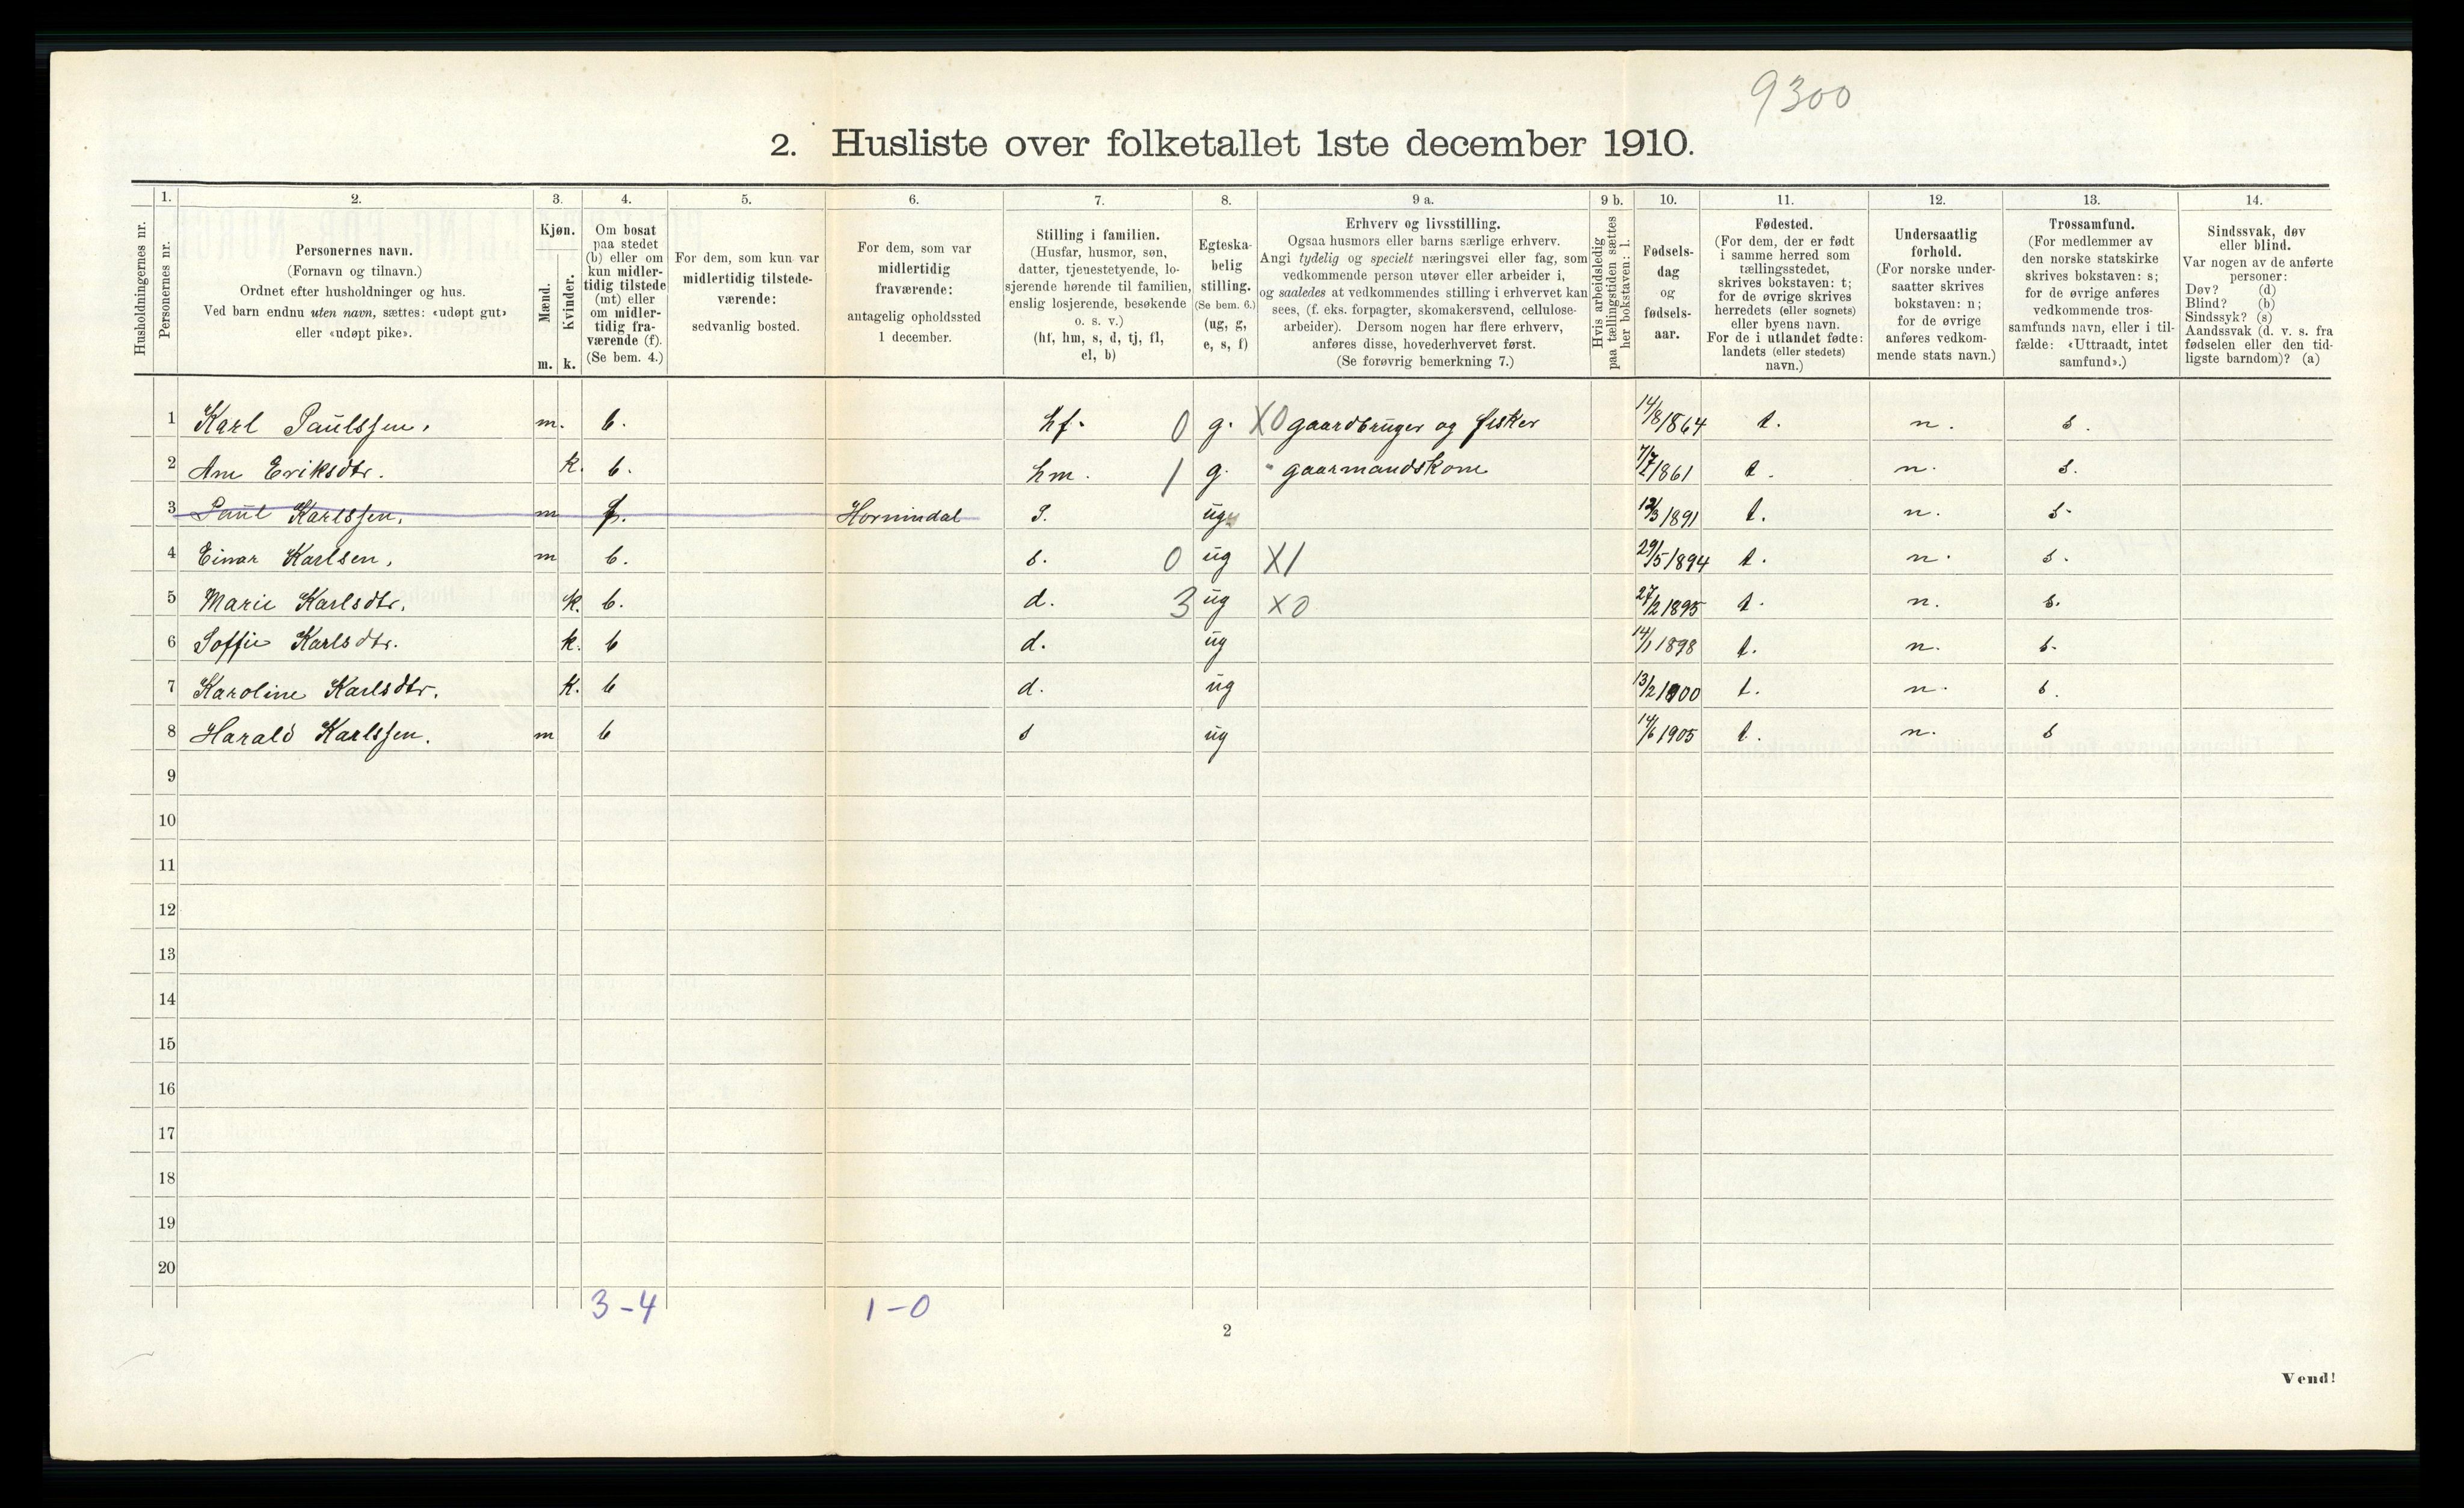 9300
2. Husliste over folketallet 1ste december 1910.
Husholdningernes nr.
1.
Personernes nr.
2.
Personernes navn.
(Fornavn og tilnavn.)
Ordnet efter husholdninger og hus.
Ved barn endnu uten navn, sættes: «udøpt gut»
eller «udøpt pike».
3.
Kjøn.
Mænd.
Kvinder.
m. k.
4.
Om bosat
paa stedet
(b) eller om
kun midler-
tidig tilstede
(mt) eller
om midler-
tidig fra-
værende (f).
(Se bem. 4.)
5.
For dem, som kun var
midlertidig tilstede-
værende:
sedvanlig bosted.
6.
For dem, som var
midlertidig
fraværende:
antagelig opholdssted
1 december.
7.
Stilling i familien.
(Husfar, husmor, søn,
datter, tjenestetyende, lo-
sjerende hørende til familien,
enslig losjerende, besøkende
o. s. v.)
(hf, hm, s, d, tj, fl,
el, b)
8.
Egteska-
belig
stilling.
(Se bem. 6.)
(ug, g,
e, s, f)
9 a.
Erhverv og livsstilling.
Ogsaa husmors eller barns særlige erhverv.
Angi tydelig og specielt næringsvei eller fag, som
vedkommende person utøver eller arbeider i,
og saaledes at vedkommendes stilling i erhvervet kan
sees, (f. eks. forpagter, skomakersvend, cellulose-
arbeider). Dersom nogen har flere erhverv,
anføres disse, hovederhvervet først.
(Se forøvrig bemerkning 7.)
9 b.
Hvis arbeidsledig
paa tællingstiden sættes
her bokstaven: l.
10.
Fødsels-
dag
og
fødsels-
aar.
11.
Fødested.
(For dem, der er født
i samme herred som
tællingsstedet,
skrives bokstaven: t;
for de øvrige skrives
herredets (eller sognets)
eller byens navn.
For de i utlandet fødte:
landets (eller stedets)
navn.)
12.
Undersaatlig
forhold.
(For norske under-
saatter skrives
bokstaven: n;
for de øvrige
anføres vedkom-
mende stats navn.)
13.
Trossamfund.
(For medlemmer av
den norske statskirke
skrives bokstaven: s;
for de øvrige anføres
vedkommende tros-
samfunds navn, eller i til-
fælde: «Uttraadt, intet
samfund».)
14.
Sindssvak, døv
eller blind.
Var nogen av de anførte
personer:
Døv? (d)
Blind? (b)
Sindssyk? (s)
Aandssvak (d. v. s. fra
fødselen eller den tid-
ligste barndom)? (a)
1 Karl Paulssen, m. b. hf. 0 g. X0 gaardbruger og fisker 14/8 1864 t. n. s.
2 Ane Eriksdtr. k. b. hm. 1 g. " gaarmandskone 7/7 1861 t. n. s.
3 Paul Karlssen, m f. Hornindal S. ug 1891 t. n. s.
4 Einar Karlsen, m b. s. 0 ug X1 29/5 1894 t. n. s.
5 Marie Karlsdtr. k. b. d. 3 ug X0 27/2 1895 t. n. s.
6 Soffie Karlsdtr. k. b d. ug 14/1 1898 t. n. s.
7 Karoline Karlsdtr. k. b d. ug 13/2 1900 t. n. s.
8 Harald Karlssen. m b s ug 14/6 1905 t. n. s
9
10
11
12
13
14
15
16
17
18
19
20
3-4 1-0
2
Vend!